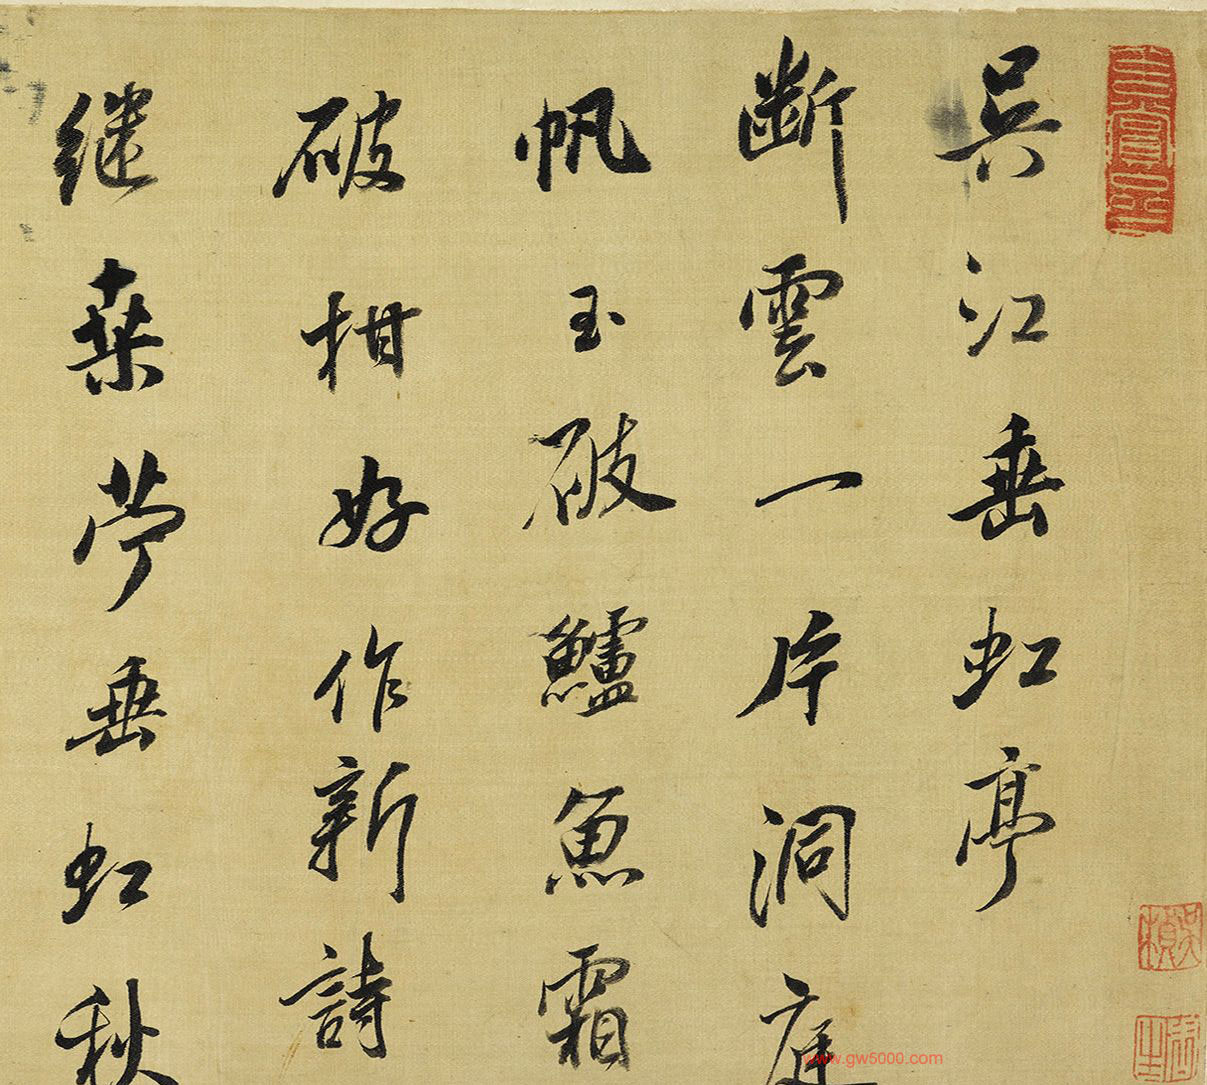 玄賞齋
吳江垂虹亭
斷雲一片洞庭
帆玉破鱸魚霜
破柑好作新詩
継桒苧垂虹秋
吳楨
www.gw5000.com